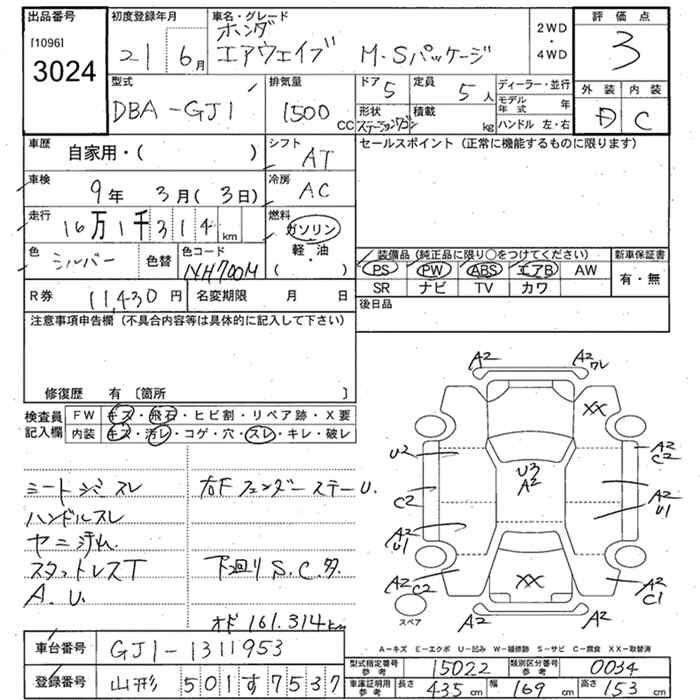 出品番号
[1096]
3024
初度登録年月
21年 6月
車名・グレード
ホンダ
エアウェイブ M・Sパッケージ
2WD
・
4WD
評価点
3
外装 内装
D C
型式
DBA-GJ1
排気量
1500 CC
ドア 5
定員 5人
形状 ステーションワゴン
積載 kg
ディーラー・並行
モデル年式 年
ハンドル 左・右
車歴
自家用・( )
シフト
AT
セールスポイント (正常に機能するものに限ります)
車検
9年 3月( 3日)
冷房
AC
走行
16万1千314km
燃料
ガソリン
軽・油
( )
色
シルバー
色替
色コード
NH700M
装備品 (純正品に限り○をつけてください)
新車保証書
PS PW ABS エアB AW
有・無
SR ナビ TV カワ
R券 11,430円 名変期限 月 日
後日品
注意事項申告欄 (不具合内容等は具体的に記入して下さい)
修復歴 有 〔箇所 〕
検査員
記入欄
FW キズ・飛石・ヒビ割・リペア跡・X要
内装 キズ・汚レ・コゲ・穴・スレ・キレ・破レ
シートシミ スレ
ハンドルスレ
ヤニ汚れ
スタットレスT
A.U.
右Fフェンダーステー U.
下廻り S.C.タ.
オド 161,314km
A2 A2 ワレ
XX
U2
A2
C2
U3
A2
C2
A2
U1
A2
U1
A2
C2
XX
A2
C1
スペア
A2 A2
A-キズ E-エクボ U-凹み W-補修跡 S-サビ C-腐食 XX-取替済
車台番号 GJ1-1311953
登録番号 山形 501す7537
型式指定番号 参考 15022
類別区分番号 参考 0034
車庫証明用 参考 長さ 435cm 幅 169cm 高さ 153cm